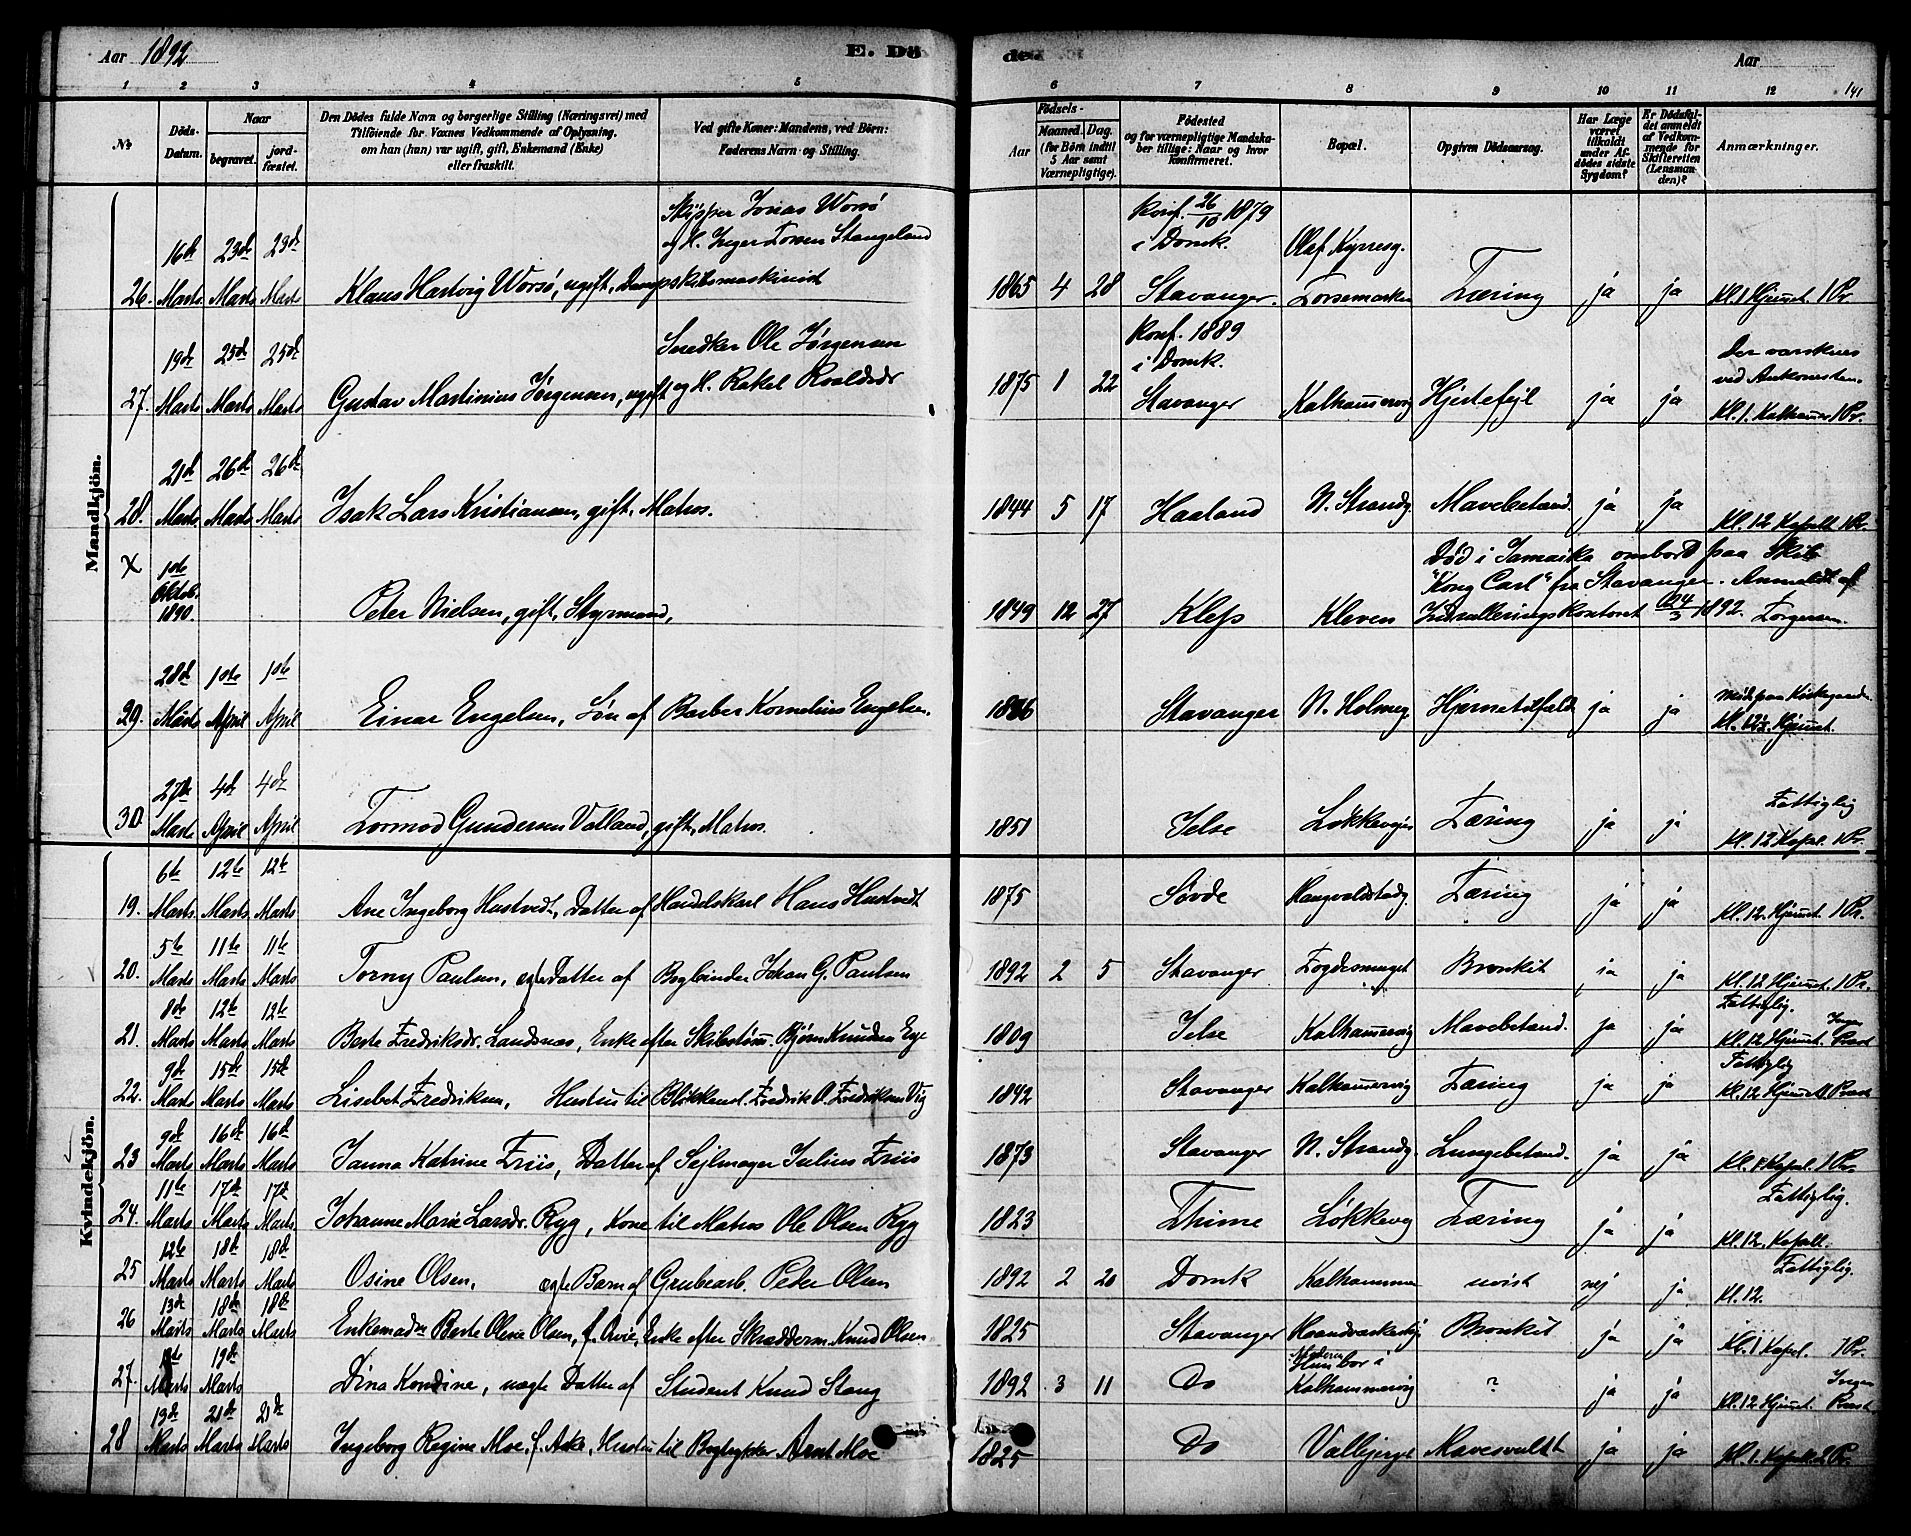 Aar 1892 E. Dö
de. Aar
141
1 2 3 4 5 6 7 8 9 10 11 12
No
Döds-Datum.
Naar
begravet.
jordfæstet.
Den Dödes fulde Navn og borgerlige Stilling (Næringsvei) med
Tilföiende for Voxnes Vedkommende af Oplysning,
om han (hun) var ugift, gift, Enkemand (Enke)
eller fraskilt.
Ved gifte Koner: Mandens, ved Börn:
Faderens Navn og Stilling.
Födsels-
Aar
Maaned. Dag.
(for Börn indtil
5 Aar samt
Værnepligtige).
Födested
og for værnepligtige Mandska-
ber tillige: Naar og hvor
konfirmeret.
Bopæl.
Opgiven Dödsaarsag.
Har Læge
været
tilkaldt
under Af-
dödes sidste
Sygdom?
Er Dödsfal-
det anmeldt
af Vedkom-
mende for
Skifteretten
(Lensman-
den)?
Anmærkninger.
Mandkjön.
26. 16de Marts 23de Marts 23de Marts Klaus Hartvig Worsø, ugift, Dampskibsmaskinist
Skipper Jonas Worsø
og H. Inger Torsen Stangeland
1865 4 28 Konf. 26/10 1879
i Domk.
Stavanger. Olaf Kyrresg. Tæring ja ja Kl. 1 Hjemmet. 1 Pr.
27. 19de Marts 25de Marts 25de Marts Gustav Martinius Jørgensen, ugift
Snedker Ole Jørgensen
og H. Rakel Roaldsdr
1875 1 22 Konf. 1889
i Domk.
Stavanger Kalhammervig Hjertefejl ja ja
Kl. 1. Kalhammer 1 Pr.
28. 21de Marts 26de Marts 26de Marts Isak Lars Kristiansen, gift, Matros.
1844 5 17 Haaland N. Strandg. Mavebetænd. ja ja Kl. 12 Kapell. 1 Pr.
X 1ste Oktob. 1890. Peter Nielsen, gift, Styrmand,
1849 12 27 Klep Kleven
Død i Jamaika ombord paa Skib
"Kong Carl" fra Stavanger. Anmeldt af
Indrulleringskontoret 24/3 1892. Torgersen.
29. 28de Marts 1ste April 1ste April Einar Engelsen, Søn af Barber Kornelius Engelsen.
Stavanger N. Holmeg. Hjernetilfælde ja ja
Mødt paa Kirkegaarden
Kl. 12½. Hjemmet.
30. 27de Marts 4de April 4de April Tormod Gundersen Valland, gift, Matros.
1851 Jelse Løkkevejen Tæring ja ja
Fattiglig
Kl. 12 Kapel. 1 Pr.
Kvindekjön.
19. 6te Marts 12te Marts 12te Marts Ane Ingeborg Hustvedt, Datter af Handelskarl Hans Hustvedt
1875 Søvde Haugvaldstadg. Tæring ja ja Kl. 12. Hjemmet. 1 Pr.
20. 5te Marts 11te Marts 11te Marts Torny Paulsen, ægte Datter af Bogbinder Johan G. Paulsen
1892 2 5 Stavanger Fogdesmuget Bronkit ja ja Kl. 12 Hjemmet. 1 Pr.
21. 8de Marts 12te Marts 12te Marts Berte Fredriksdr. Landsnæs, Enke efter Skibstømm. Bjørn Knudsen
1809 Jelse Kalhammervig Mavebetænd. ja ja
Fattiglig.
Kl. 12 Hjemmet. Ingen Præst
22. 9de Marts 15de Marts 15de Marts Lisebet Fredriksen, Hustru til Blikkensl. Fredrik O. Fredriksen Vig
1842 Stavanger Kalhammervig Tæring ja ja
Fattiglig
Kl. 12 Hjemmet 1 Præst
23 9de Marts 16de Marts 16de Marts Janna Katrine Friis, Datter af Sejlmager Julius Friis
1873 Stavanger N. Strandg. Lungebetænd. ja ja Kapel. 1 Pr.
24. 11te Marts 17de Marts 17de Marts Johanne Marie Larsdr. Ryg, Kone til Matros Ole Olsen Ryg
1823 Thime Løkkevg Tæring ja ja
Fattiglig.
Kl. 12. Kapell.
25 12te Marts 18de Marts 18de Marts Osine Olsen, ægte Barn af Grubearb. Peter Olsen
1892 2 20 Domk Kalhammer uvist nej ja
Fattiglig.
Kl. 12.
26 13de Marts 18de Marts 18de Marts Enkemadm Berte Olene Olsen, Enke efter Skrædderm. Knud Olsen
1825 Stavanger Haandværkerstg. Bronkit ja ja Kl. 1 Kapel. 1 Pr.
27. Marts 19de Marts Dina Kondine, uægte Datter af Student Knud Stang
1892 3 11 Do
Moderen
bor i
Kalhammervig ? ja ja Kl. 12 Hjemmet Ingen Præst
28 13de Marts 21de Marts 21de Marts Ingeborg Regine Moe, f. Aske, Hustru til Bogtrykker Arnt Moe
1825 Do Valbjerget Mavesvulst ja ja Kl. 1. Kapell. 2 Pr.